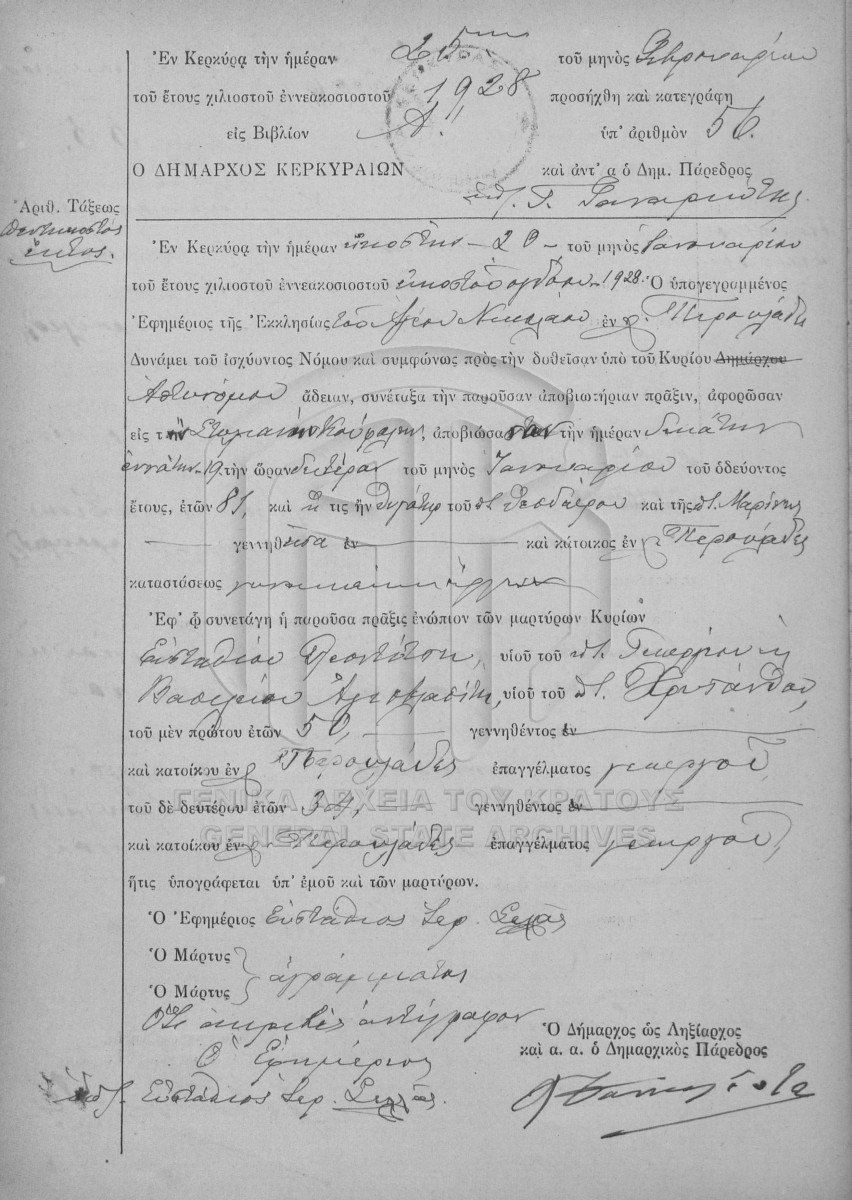 Ἐν Κερκύρᾳ τὴν ἡμέραν 25ην τοῦ μηνὸς Φεβρουαρίου
τοῦ ἔτους χιλιοστοῦ ἐννεακοσιοστοῦ 1928 προσήχθη καὶ κατεγράφη
εἰς Βιβλίον Α'' ὑπ' ἀριθμὸν 56.
Ο ΔΗΜΑΡΧΟΣ ΚΕΡΚΥΡΑΙΩΝ καὶ ἀντ' α ὁ Δημ. Πάρεδρος
ὑπογ. Γ.
Ἀριθ. Τάξεως
πεντηκοστὸς
ἕκτος.
Ἐν Κερκύρᾳ τὴν ἡμέραν εἰκοστὴν - 20 - τοῦ μηνὸς Ἰανουαρίου
τοῦ ἔτους χιλιοστοῦ ἐννεακοσιοστοῦ εἰκοστοῦ ὀγδόου 1928 Ὁ ὑπογεγραμμένος
Ἐφημέριος τῆς Ἐκκλησίας τοῦ Ἁγίου Νικολάου ἐν Περουλάδες
Δυνάμει τοῦ ἰσχύοντος Νόμου καὶ συμφώνως πρὸς τὴν δοθεῖσαν ὑπὸ τοῦ Κυρίου Δημάρχου
Ἀστυνόμου ἄδειαν, συνέταξα τὴν παροῦσαν ἀποβιωτήριαν πρᾶξιν, ἀφορῶσαν
εἰς τὴν, ἀποβιώσασαν τὴν ἡμέραν δεκάτην
ἐννάτην 19 τὴν ὥραν δευτέραν τοῦ μηνὸς Ἰανουαρίου τοῦ ὁδεύοντος
ἔτους, ἐτῶν 81, καὶ ἥ τις ἦν θυγάτηρ τοῦ ποτ. Θεοδώρου καὶ τῆς ποτ. Μαρίνης
γεννηθεῖσα ἐν καὶ κάτοικος ἐν Περουλάδες
καταστάσεως γυναικεῖα ἔργα
Ἐφ' ᾧ συνετάγη ἡ παροῦσα πρᾶξις ἐνώπιον τῶν μαρτύρων Κυρίων
Εὐσταθίου, υἱοῦ τοῦ ποτ. Γεωργίου ἢ
Βασιλείου Ἁγιοβλασίτη, υἱοῦ τοῦ ποτ. Χρυσάνθου,
τοῦ μὲν πρώτου ἐτῶν 50, γεννηθέντος ἐν
καὶ κατοίκου ἐν Περουλάδες ἐπαγγέλματος γεωργοῦ
τοῦ δὲ δευτέρου ἐτῶν 34, γεννηθέντος ἐν
ΓΕΝΙΚΑ ΑΡΧΕΙΑ ΤΟΥ ΚΡΑΤΟΥΣ
GENERAL STATE ARCHIVES
καὶ κατοίκου ἐν Περουλάδες ἐπαγγέλματος γεωργοῦ,
ἥτις ὑπογράφεται ὑπ' ἐμοῦ καὶ τῶν μαρτύρων.
Ὁ Ἐφημέριος Εὐστάθιος Ἱερ.
Ὁ Μάρτυς
ἀγράμματος
Ὁ Μάρτυς
Ὅτι ἀκριβὲς ἀντίγραφον
Ὁ Ἐφημέριος
ὑπογ. Εὐστάθιος Ἱερ.
Ὁ Δήμαρχος ὡς Ληξίαρχος
καὶ α. α. ὁ Δημαρχικὸς Πάρεδρος